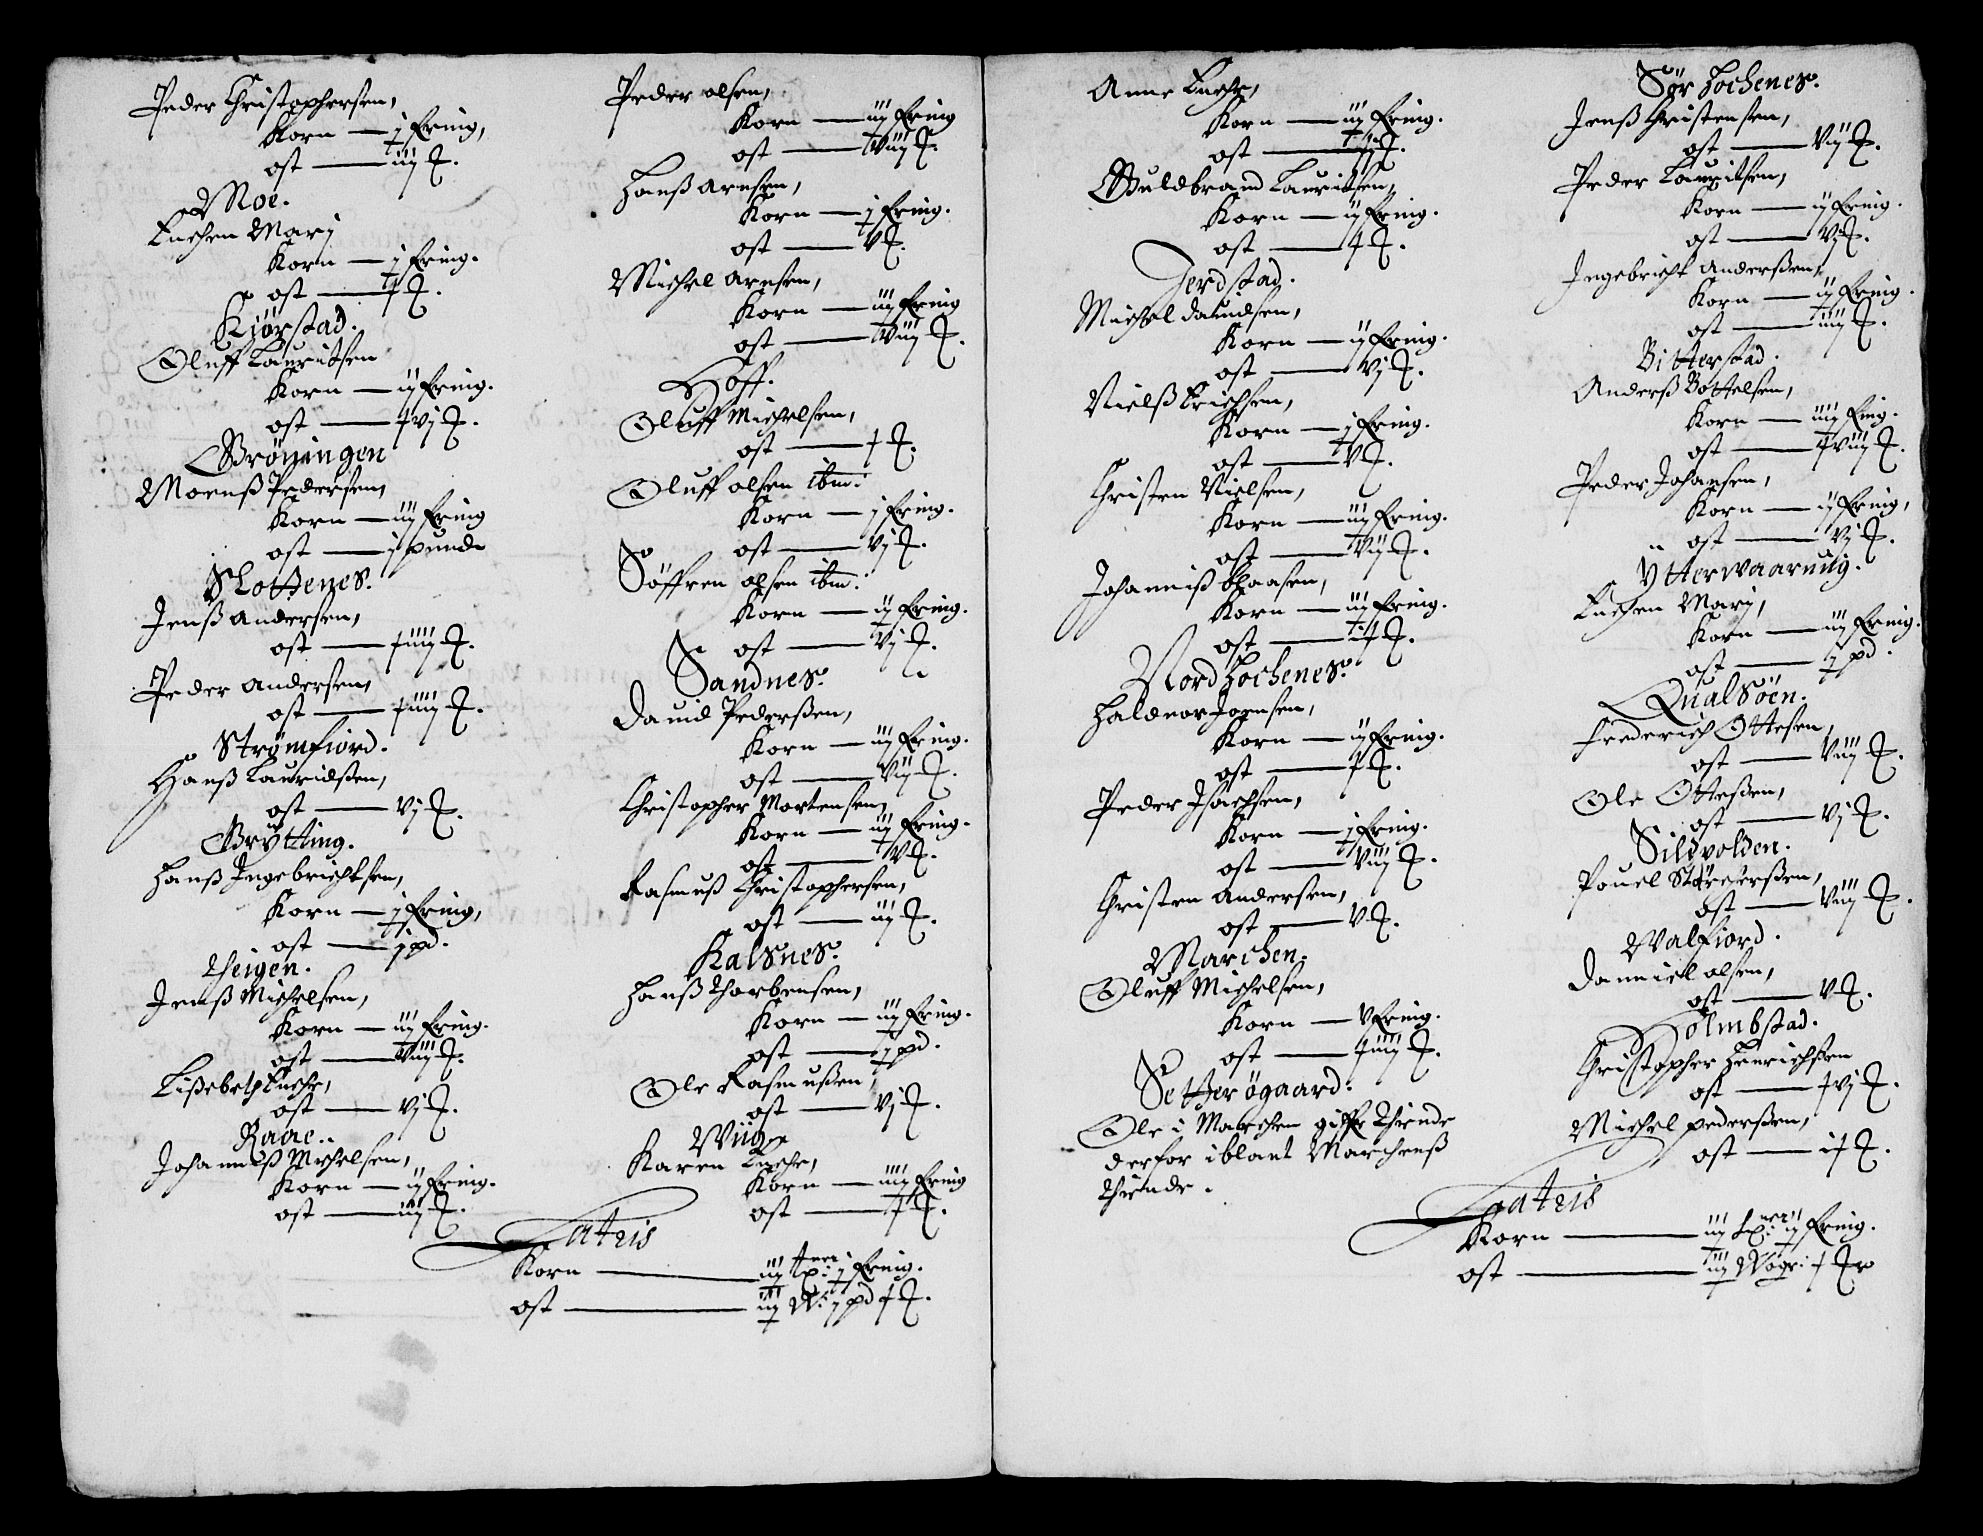 Peder Christophersen,
Korn — j fring,
ost — iij ℔.
Moe.
Enchen Marj
Korn — j fring.
ost — ℔.
Kjørstad.
Oluff Lauritsen
Korn — ij fring.
ost — xvj ℔.
Grøningen
Moenß Pedersen,
Korn — iij fring
ost — j pund
Slottenes.
Jenß Andersen,
ost — xiiij ℔.
Peder Andersen,
ost — xiiij ℔.
Strømfiord.
Hanß Lauridßen,
ost — vj ℔.
Grytting.
Hanß Ingebrichtsen,
Korn — j fring,
ost — j pd.
Theigen.
Jenß Michelsen,
Korn — iij fring.
ost — viij ℔.
Lißebeth Enche,
ost — vj ℔.
Raae..
Johanniß Michelsen,
Korn — ij fring.
ost — iij ℔.
Peder olsen,
Korn — iij fring
ost — viij ℔.
Hanß Arnsen,
Korn — j fring.
ost — v ℔.
Michel Arnsen,
Korn — iij fring
ost — viij ℔.
Hoff.
Oluff Michelsen,
ost — x ℔.
Oluff olsen ibm:
Korn — j fring.
ost — vj ℔.
Søffren olsen ibm:
Korn — ij fring.
ost — vj ℔.
Sandnes.
Dauid Pederßen,
Korn — iij fring.
ost — vij ℔.
Christopher Mortensen,
Korn — iij fring.
ost — v ℔.
Rasmuß Christophersen,
ost — iij ℔.
Kalsnes.
Hanß Thorbensen,
Korn — iij fring.
ost — j pd.
Ole Rasmußen,
ost — vj ℔.
Wiig
Karen Enche,
Korn — iiij fring
ost — x ℔.
Lateris
Korn — iij tp: j fring.
ost — iij W: j pd x ℔.
Anne Enche,
Korn — iij fring.
ost — ℔.
Guldbrand Lauritsen,
Korn — ij fring.
ost — x ℔.
Jerdstad.
Michel dauidsen,
Korn — ij fring.
ost — vj ℔.
Nielß Erichsen,
Korn — j fring.
ost — v ℔.
Christen Nielsen,
Korn — iij fring.
ost — vij ℔.
Johanniß Claasen,
Korn — iij fring.
ost — ix ℔.
Nord Hochenes.
Haldnor Joensen,
Korn — ij fring.
ost — x ℔.
Peder Isachsen,
Korn — j fring.
ost — viij ℔.
Christen Andersen,
ost — v ℔.
Marchen.
Oluff Michelsen,
Korn — v fring.
ost — xiiij ℔.
Setterøgaard.
Ole i Marchen giffr Thiende
derfor iblant Marchenß
Thiende.
Sør Hochenes.
Jenß Christensen,
ost — vij ℔.
Peder Lauritsen,
Korn — ij fring.
ost — vj ℔.
Ingebricht Anderßen,
Korn — ij fring.
ost — iiij ℔.
Bitterstad.
Anderß Bottelsen,
Korn — iiij fring.
ost — xviij ℔.
Peder Johansen,
Korn — ij fring,
ost — vj ℔.
Ytterwaaruiig.
Enchen Marj,
Korn — iij fring.
ost — j pd.
Qualsøen.
Frederich Ottesen,
ost — viij ℔.
Ole Otteßen,
ost — vj ℔.
Sildvolden.
Pouel Størcherßen,
ost — viij ℔.
Walfiord.
Danniel olsen,
ost — v ℔.
Holmbstad.
Christopher Henrichßen
ost — xvj ℔.
Michel pederßen,
ost — ix ℔.
Lateris
Korn — iij tp: ij fring.
ost — iij Wogr: x ℔r